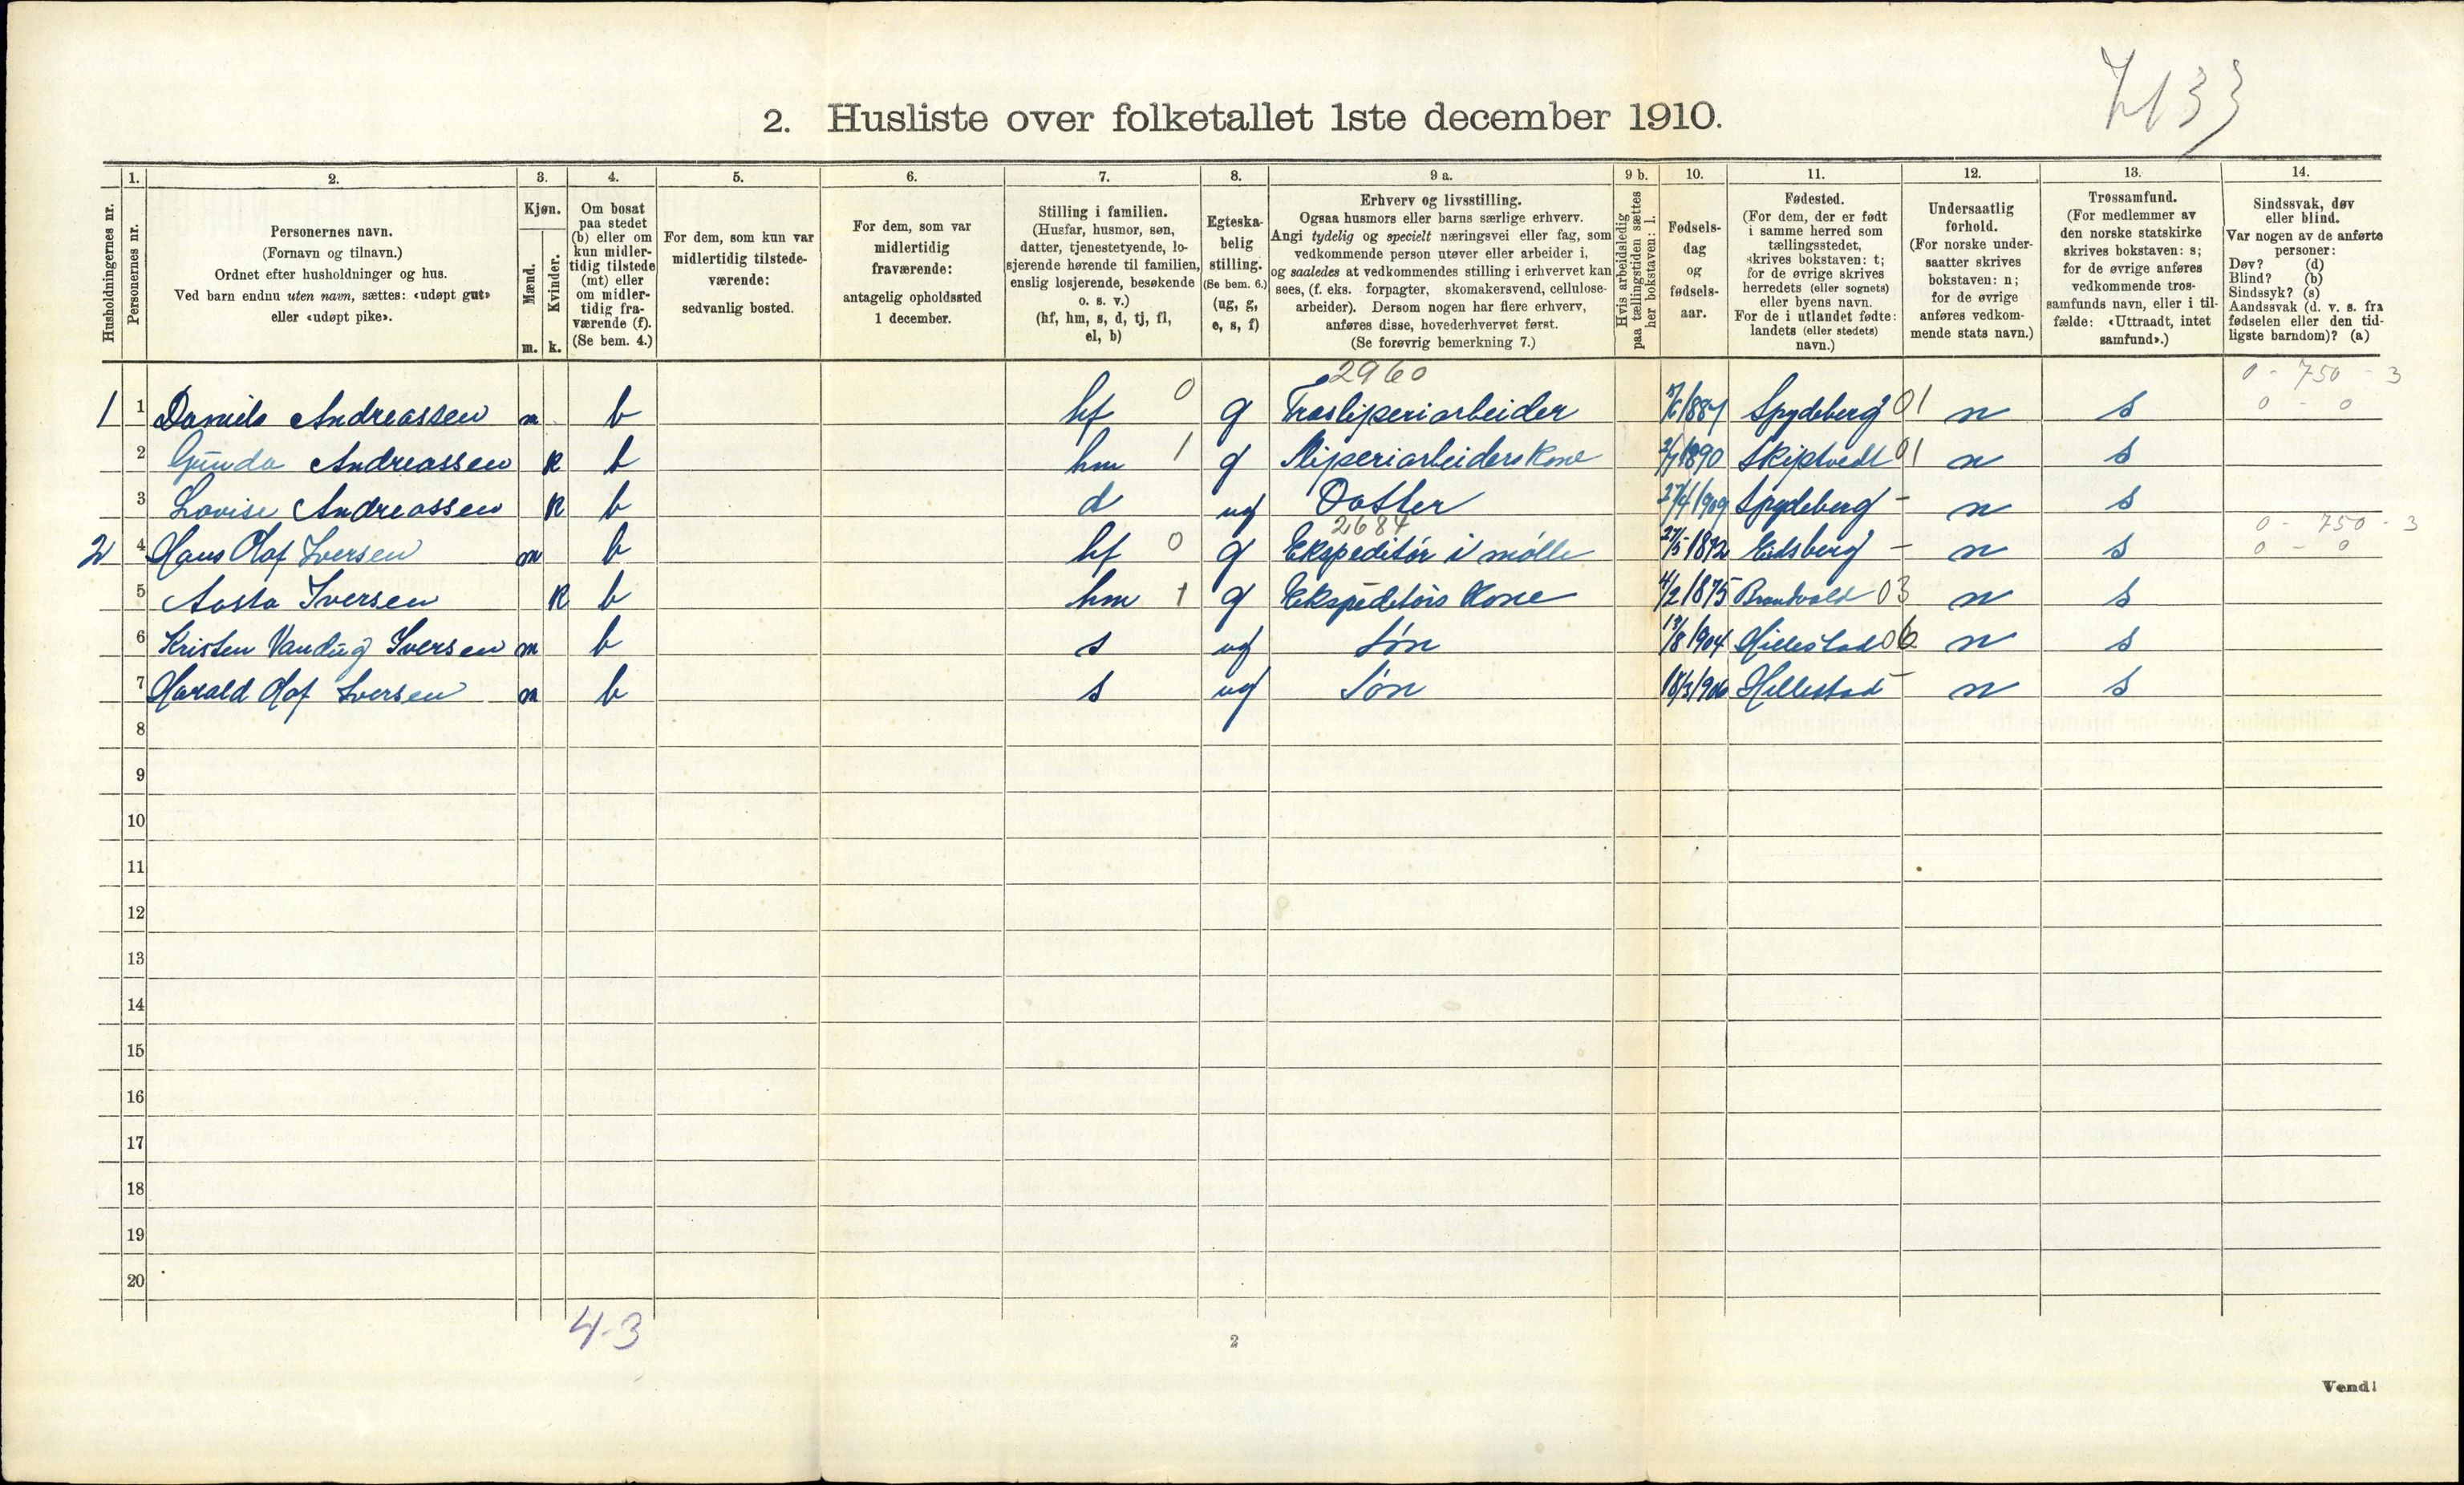 2. Husliste over folketallet 1ste december 1910.
1. 2. 3. 4. 5. 6. 7. 8. 9 a. 9 b. 10. 11. 12. 13. 14.
Husholdningernes nr.
Personernes nr.
Personernes navn.
(Fornavn og tilnavn.)
Ordnet efter husholdninger og hus.
Ved barn endnu uten navn, sættes: «udøpt gut»
eller «udøpt pike».
Kjøn.
Mænd.
Kvinder.
m. k.
Om bosat
paa stedet
(b) eller om
kun midler-
tidig tilstede
(mt) eller
om midler-
tidig fra-
værende (f).
(Se bem. 4.)
For dem, som kun var
midlertidig tilstede-
værende:
sedvanlig bosted.
For dem, som var
midlertidig
fraværende:
antagelig opholdssted
1 december.
Stilling i familien.
(Husfar, husmor, søn,
datter, tjenestetyende, lo-
sjerende hørende til familien,
enslig losjerende, besøkende
o. s. v.)
(hf, hm, s, d, tj, fl,
el, b)
Egteska-
belig
stilling.
(Se bem. 6.)
(ug, g,
e, s, f)
Erhverv og livsstilling.
Ogsaa husmors eller barns særlige erhverv.
Angi tydelig og specielt næringsvei eller fag, som
vedkommende person utøver eller arbeider i,
og saaledes at vedkommendes stilling i erhvervet kan
sees, (f. eks. forpagter, skomakersvend, cellulose-
arbeider). Dersom nogen har flere erhverv,
anføres disse, hovederhvervet først.
(Se forøvrig bemerkning 7.)
Hvis arbeidsledig
paa tællingstiden sættes
her bokstaven: l.
Fødsels-
dag
og
fødsels-
aar.
Fødested.
(For dem, der er født
i samme herred som
tællingsstedet,
skrives bokstaven: t;
for de øvrige skrives
herredets (eller sognets)
eller byens navn.
For de i utlandet fødte:
landets (eller stedets)
navn.)
Undersaatlig
forhold.
(For norske under-
saatter skrives
bokstaven: n;
for de øvrige
anføres vedkom-
mende stats navn.)
Trossamfund.
(For medlemmer av
den norske statskirke
skrives bokstaven: s;
for de øvrige anføres
vedkommende tros-
samfunds navn, eller i til-
fælde: «Uttraadt, intet
samfund».)
Sindssvak, døv
eller blind.
Var nogen av de anførte
personer:
Døv? (d)
Blind? (b)
Sindssyk? (s)
Aandssvak (d. v. s. fra
fødselen eller den tid-
ligste barndom)? (a)
2960 0 - 750 - 3
1 1 Daniels Andreassen m b hf 0 g Træsliperiarbeider Spydeberg 01 n s 0 - 0
2 Gunda Andreassen k b hm 1 g Sliperiarbeiders kone 2/7 1890 Skiptvedt 01 n s
3 Lovise Andreassen k b d ug Datter 27/4 1909 Spydeberg - n s
2684 0 - 750 - 3
2 4 Hans Olaf Iversen m b hf 0 g Ekspeditør i mølle 27/5 1872 Eidsberg - n s 0 - 0
5 Aasta Iversen k b hm 1 g Ekspeditørs kone 4/2 1875 Brandvold 03 n s
6 Kristen Iversen m b s ug Søn 13/8 1904 Hillestad 06 n s
7 Harald Olaf Iversen m b s ug Søn 18/3 1906 Hillestad - n s
8
9
10
11
12
13
14
15
16
17
18
19
20
4-3
2
Vend!